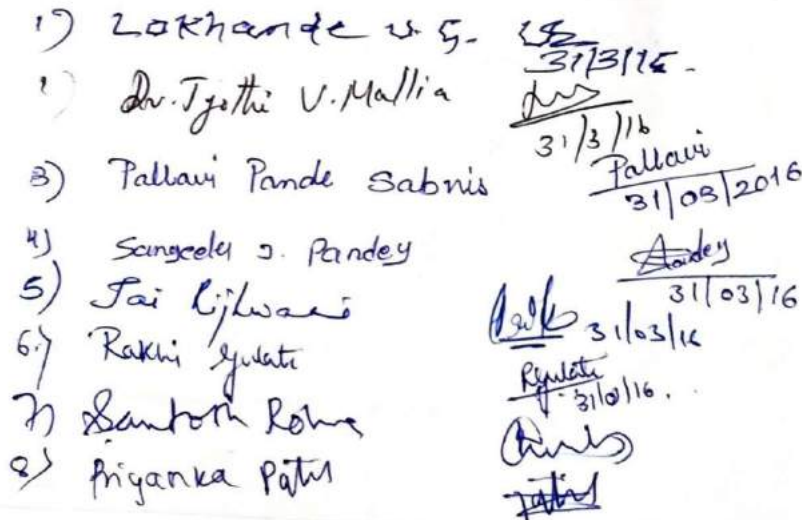 1) Lokhande v. G. 31/3/16.
Dr. Jyothi V. Mallia 31/3/16
3) Pallavi Pande Sabnis Pallavi 31/03/2016
4) Sangeeta J. Pandey Pandey 31/03/16
5) Jai 31/03/16
6.) Rakhi Gulati RGulati 31/03/16.
7) Santosh
8) Priyanka Patil Patil